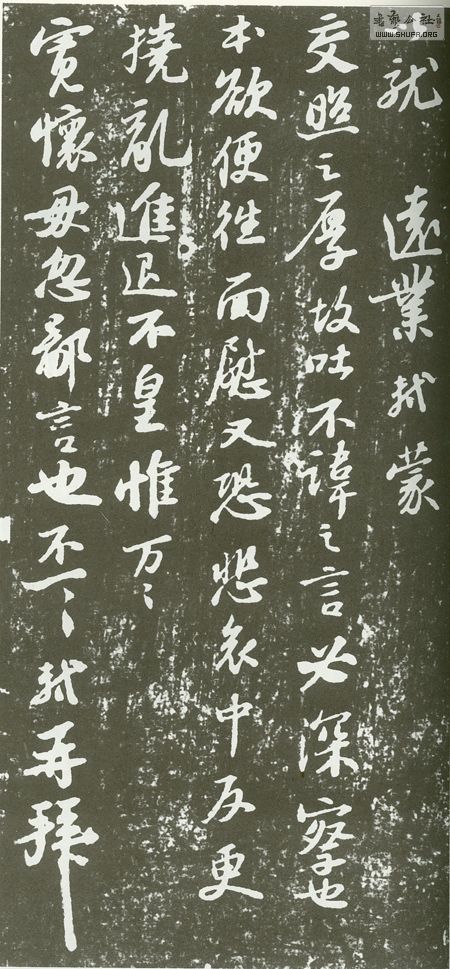 書藝公社
WWW.SHUFA.ORG
就 遠業軾蒙
交照之厚故吐不諱之言必深察也
本欲便往面慰又恐悲哀中反更
撓亂進退不皇惟万〻
寬懷毋忽鄙言也不一〻軾再拜